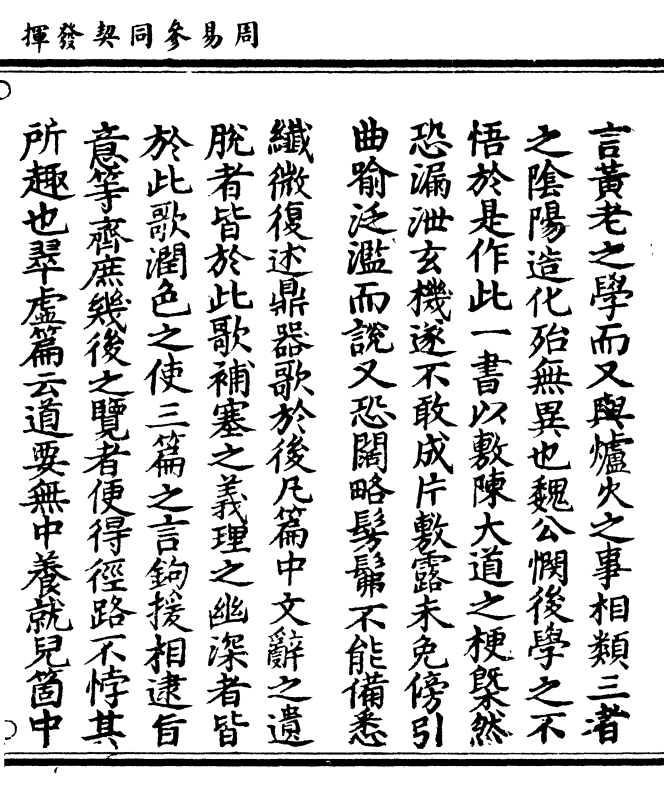 周易參同契發揮
言黃老之學而又與爐火之事相類三者
之陰陽造化殆無異也魏公憫後學之不
悟於是作此一書以敷陳大道之梗槩然
恐漏泄玄機遂不敢成片敷露未免傍引
曲喻泛濫而說又恐闊略髣髴不能備悉
纖微復述鼎器歌於後凡篇中文辭之遺
脫者皆於此歌補塞之義理之幽深者皆
於此歌潤色之使三篇之言鉤援相逮旨
意等齊庶幾後之覽者便得徑路不悖其
所趣也翠虛篇云道要無中養就兒箇中